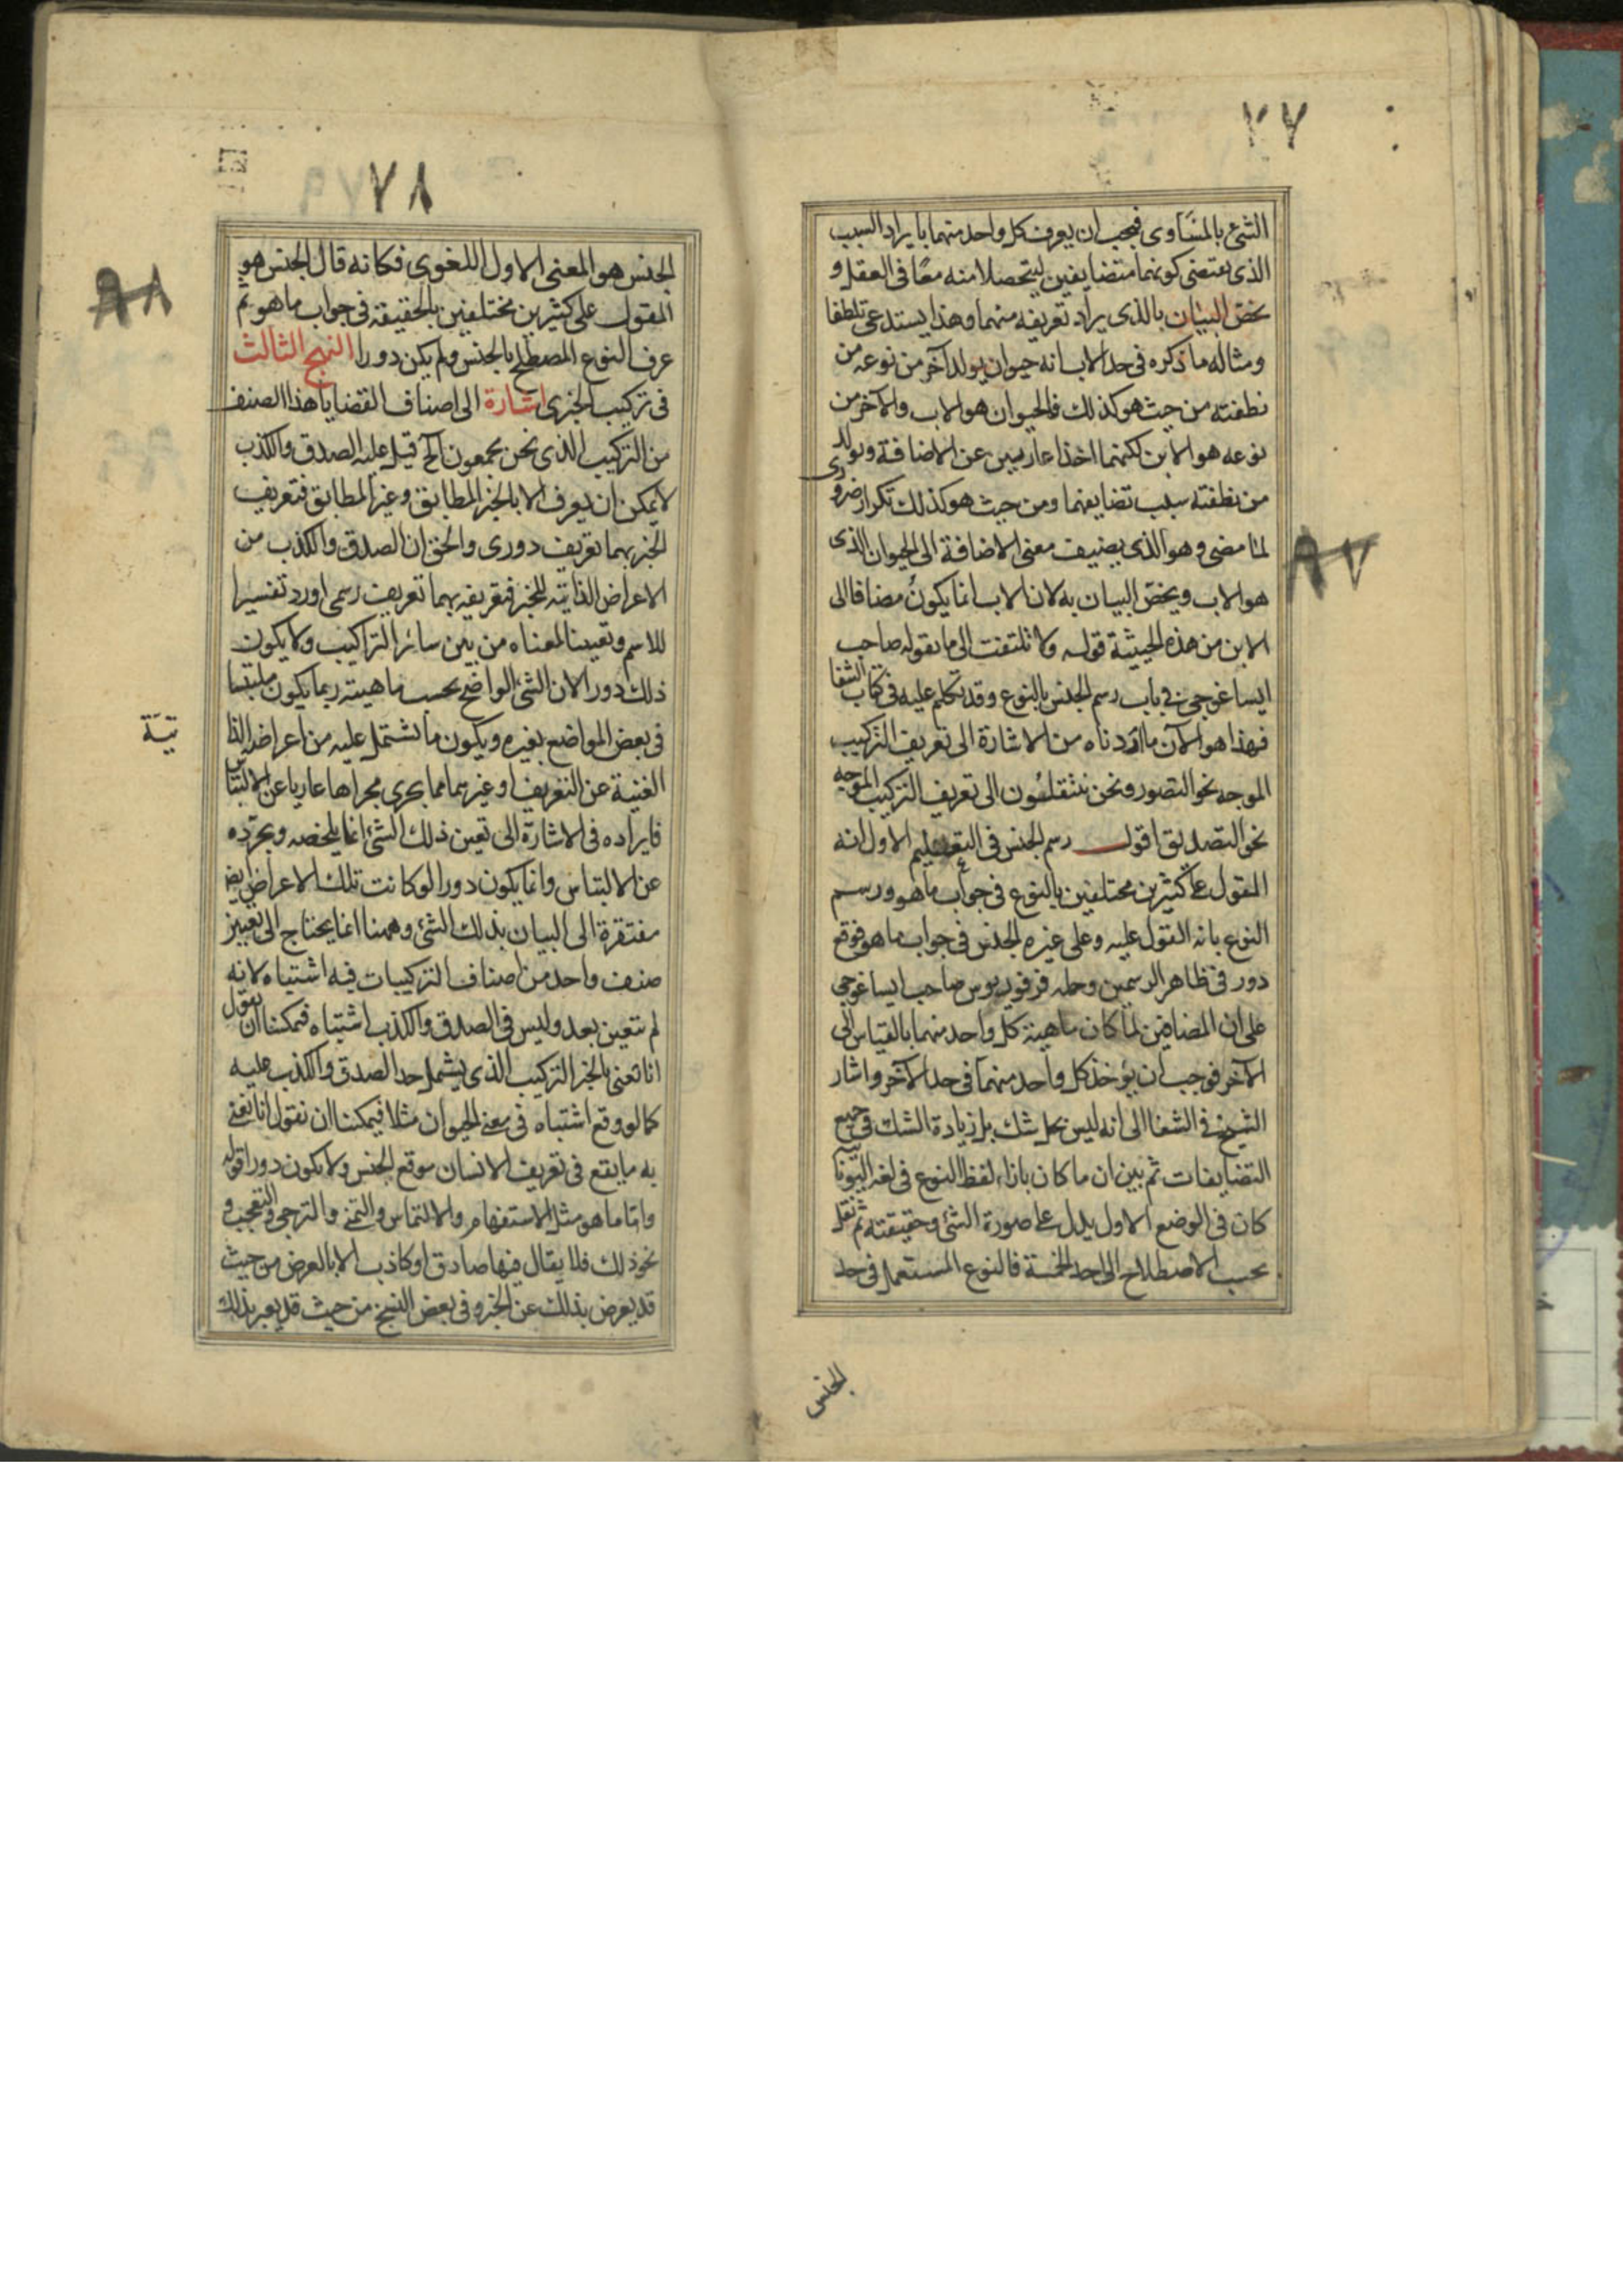 ٧٧
الشئ بالمساوى فيجب ان يعرف كل واحد منهما بايراد السبب
الذى يقتضى كونهما متضايفين ليتحصلا منه معًا فى العقل و
يخص البيان بالذى يراد تعريفه منهما وهذا يستدعى تلطفا
ومثاله ما ذكره فى حد الاب انه حيوان يولد آخر من نوعه من
نطفته من حيث هو كذلك فالحيوان هو الاب والآخر من
نوعه هو الابن لكنهما اخذا عاريين عن الاضافة ويولد
من نطفته سبب تضايفهما ومن حيث هو كذلك تكرار ضرورى
لما مضى وهو الذى يضيف معنى الاضافة الى الحيوان الذى
٨٧
هو الاب ويخص البيان به لان الاب انما يكون مضافا الى
الابن من هذه الحيثية قوله ولا تلتفت الى ما يقوله صاحب
ايساغوجى فى باب رسم الجنس بالنوع وقد تكلم عليه فى كتاب الشفا
فهذا هو الآن ما اردناه من الاشارة الى تعريف التركيب
الموجه نحو التصور ونحن منتقلون الى تعريف التركيب الموجه
نحو التصديق اقول رسم الجنس فى التعليم الاول انه
المقول على كثيرين مختلفين بالنوع فى جواب ما هو ورسم
النوع بانه المقول عليه وعلى غيره الجنس فى جواب ما هو فوقع
دور فى ظاهر الرسمين وحمله فرفوريوس صاحب ايساغوجى
على ان المضافين لما كان ماهية كل واحد منهما بالقياس الى
الآخر فوجب ان يؤخذ كل واحد منهما فى حد الآخر واشار
الشيخ فى الشفا الى انه ليس بحل شك بل زيادة الشك فى جميع
المتضايفات ثم بين ان ما كان بازاء لفظ النوع فى لغة اليونا
كان فى الوضع الاول يدل على صورة الشئ وحقيقته ثم نقل
بحسب الاصطلاح الى احد الخمسة فالنوع المستعمل فى حد
الجنس
٧٨
الجنس هو المعنى الاول اللغوى فكانه قال الجنس هو
المقول على كثيرين مختلفين بالحقيقة فى جواب ما هو ثم
٨٨
عرف النوع المصطلح بالجنس ولم يكن دورا النهج الثالث
فى تركيب الخبرى اشارة الى اصناف القضايا هذا الصنف
من التركيب الذى نحن مجمعون الخ قيل عليه الصدق والكذب
لا يمكن ان يعرف الا بالخبر المطابق وغير المطابق فتعريف
الخبر بهما تعريف دورى والحق ان الصدق والكذب من
الاعراض الذاتية للخبر فتعريفه بهما تعريف رسمى اورد تفسيرا
للاسم وتعيينا لمعناه من بين سائر التراكيب ولا يكون
ذلك دورا لان الشئ الواضح بحسب ماهيته ربما يكون ملتبسا
فى بعض المواضع بغيره ويكون ما يشتمل عليه من اعراضه الذا
تيّة
الغنية عن التعريف او غيرهما مما يجرى مجراها عاريا عن الالتباس
فايراده فى الاشارة الى تعين ذلك الشئ انما يلخصه ويجرّده
عن الالتباس وانما يكون دورا لو كانت تلك الاعراض ايضا
مفتقرة الى البيان بذلك الشئ وههنا انما يحتاج الى تعيين
صنف واحد من اصناف التركيبات فيه اشتباه لانه
لم يتعين بعد وليس فى الصدق والكذب اشتباه فيمكننا ان نقول
انا نعنى بالخبر التركيب الذى يشمل حد الصدق والكذب عليه
كما لو وقع اشتباه فى معنى الحيوان مثلا فيمكننا ان نقول انا نعنى
به ما يقع فى تعريف الانسان موقع الجنس ولا يكون دورا قوله
واما ما هو مثل الاستفهام والالتماس والتمنى والترجى والتعجب و
نحو ذلك فلا يقال فيها صادق او كاذب الا بالعرض من حيث
قد يعرض بذلك عن الخبر وفى بعض النسخ من حيث قد يعبر بذلك